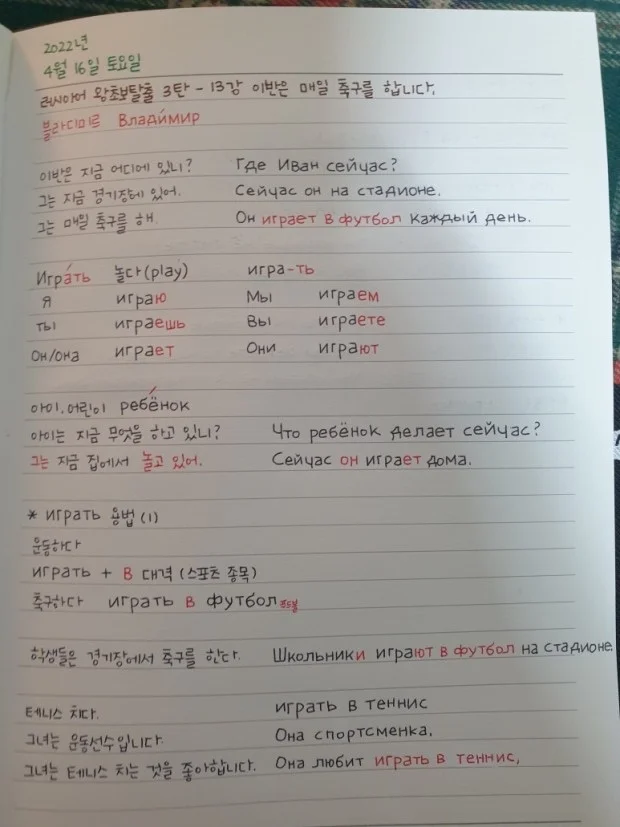 2022년
4월 16일 토요일
러시아어 왕초보탈출 3탄 - 13강 이반은 매일 축구를 합니다.
블라디미르 Влади́мир
이반은 지금 어디에 있니? Где Иван сейчас?
그는 지금 경기장에 있어. Сейчас он на стадионе.
그는 매일 축구를 해. Он играет в футбол каждый день.
Игра́ть 놀다(play) игра-ть
Я играю Мы играем
ты играешь Вы играете
Он/она играет Они играют
아이, 어린이 ребёнок
아이는 지금 무엇을 하고 있니? Что ребёнок делает сейчас?
그는 지금 집에서 놀고 있어. Сейчас он играет дома.
* играть 용법 (1)
운동하다
играть + в 대격 (스포츠 종목)
축구하다 играть в футбол
학생들은 경기장에서 축구를 한다. Школьники играют в футбол на стадионе.
테니스 치다. играть в теннис
그녀는 운동선수입니다. Она спортсменка.
그녀는 테니스 치는 것을 좋아합니다. Она любит играть в теннис,